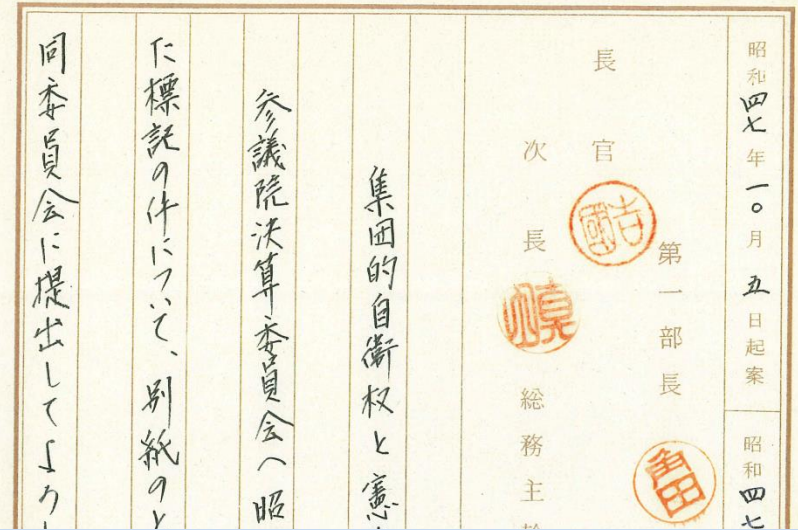 昭和四七年一〇月五日起案
昭和四七
第一部長
角田
長官
吉國
次長
眞田
総務主幹
集団的自衛权と憲
参議院決算委員会へ昭
た標記の件について、別紙のと
同委員会に提出してよろし